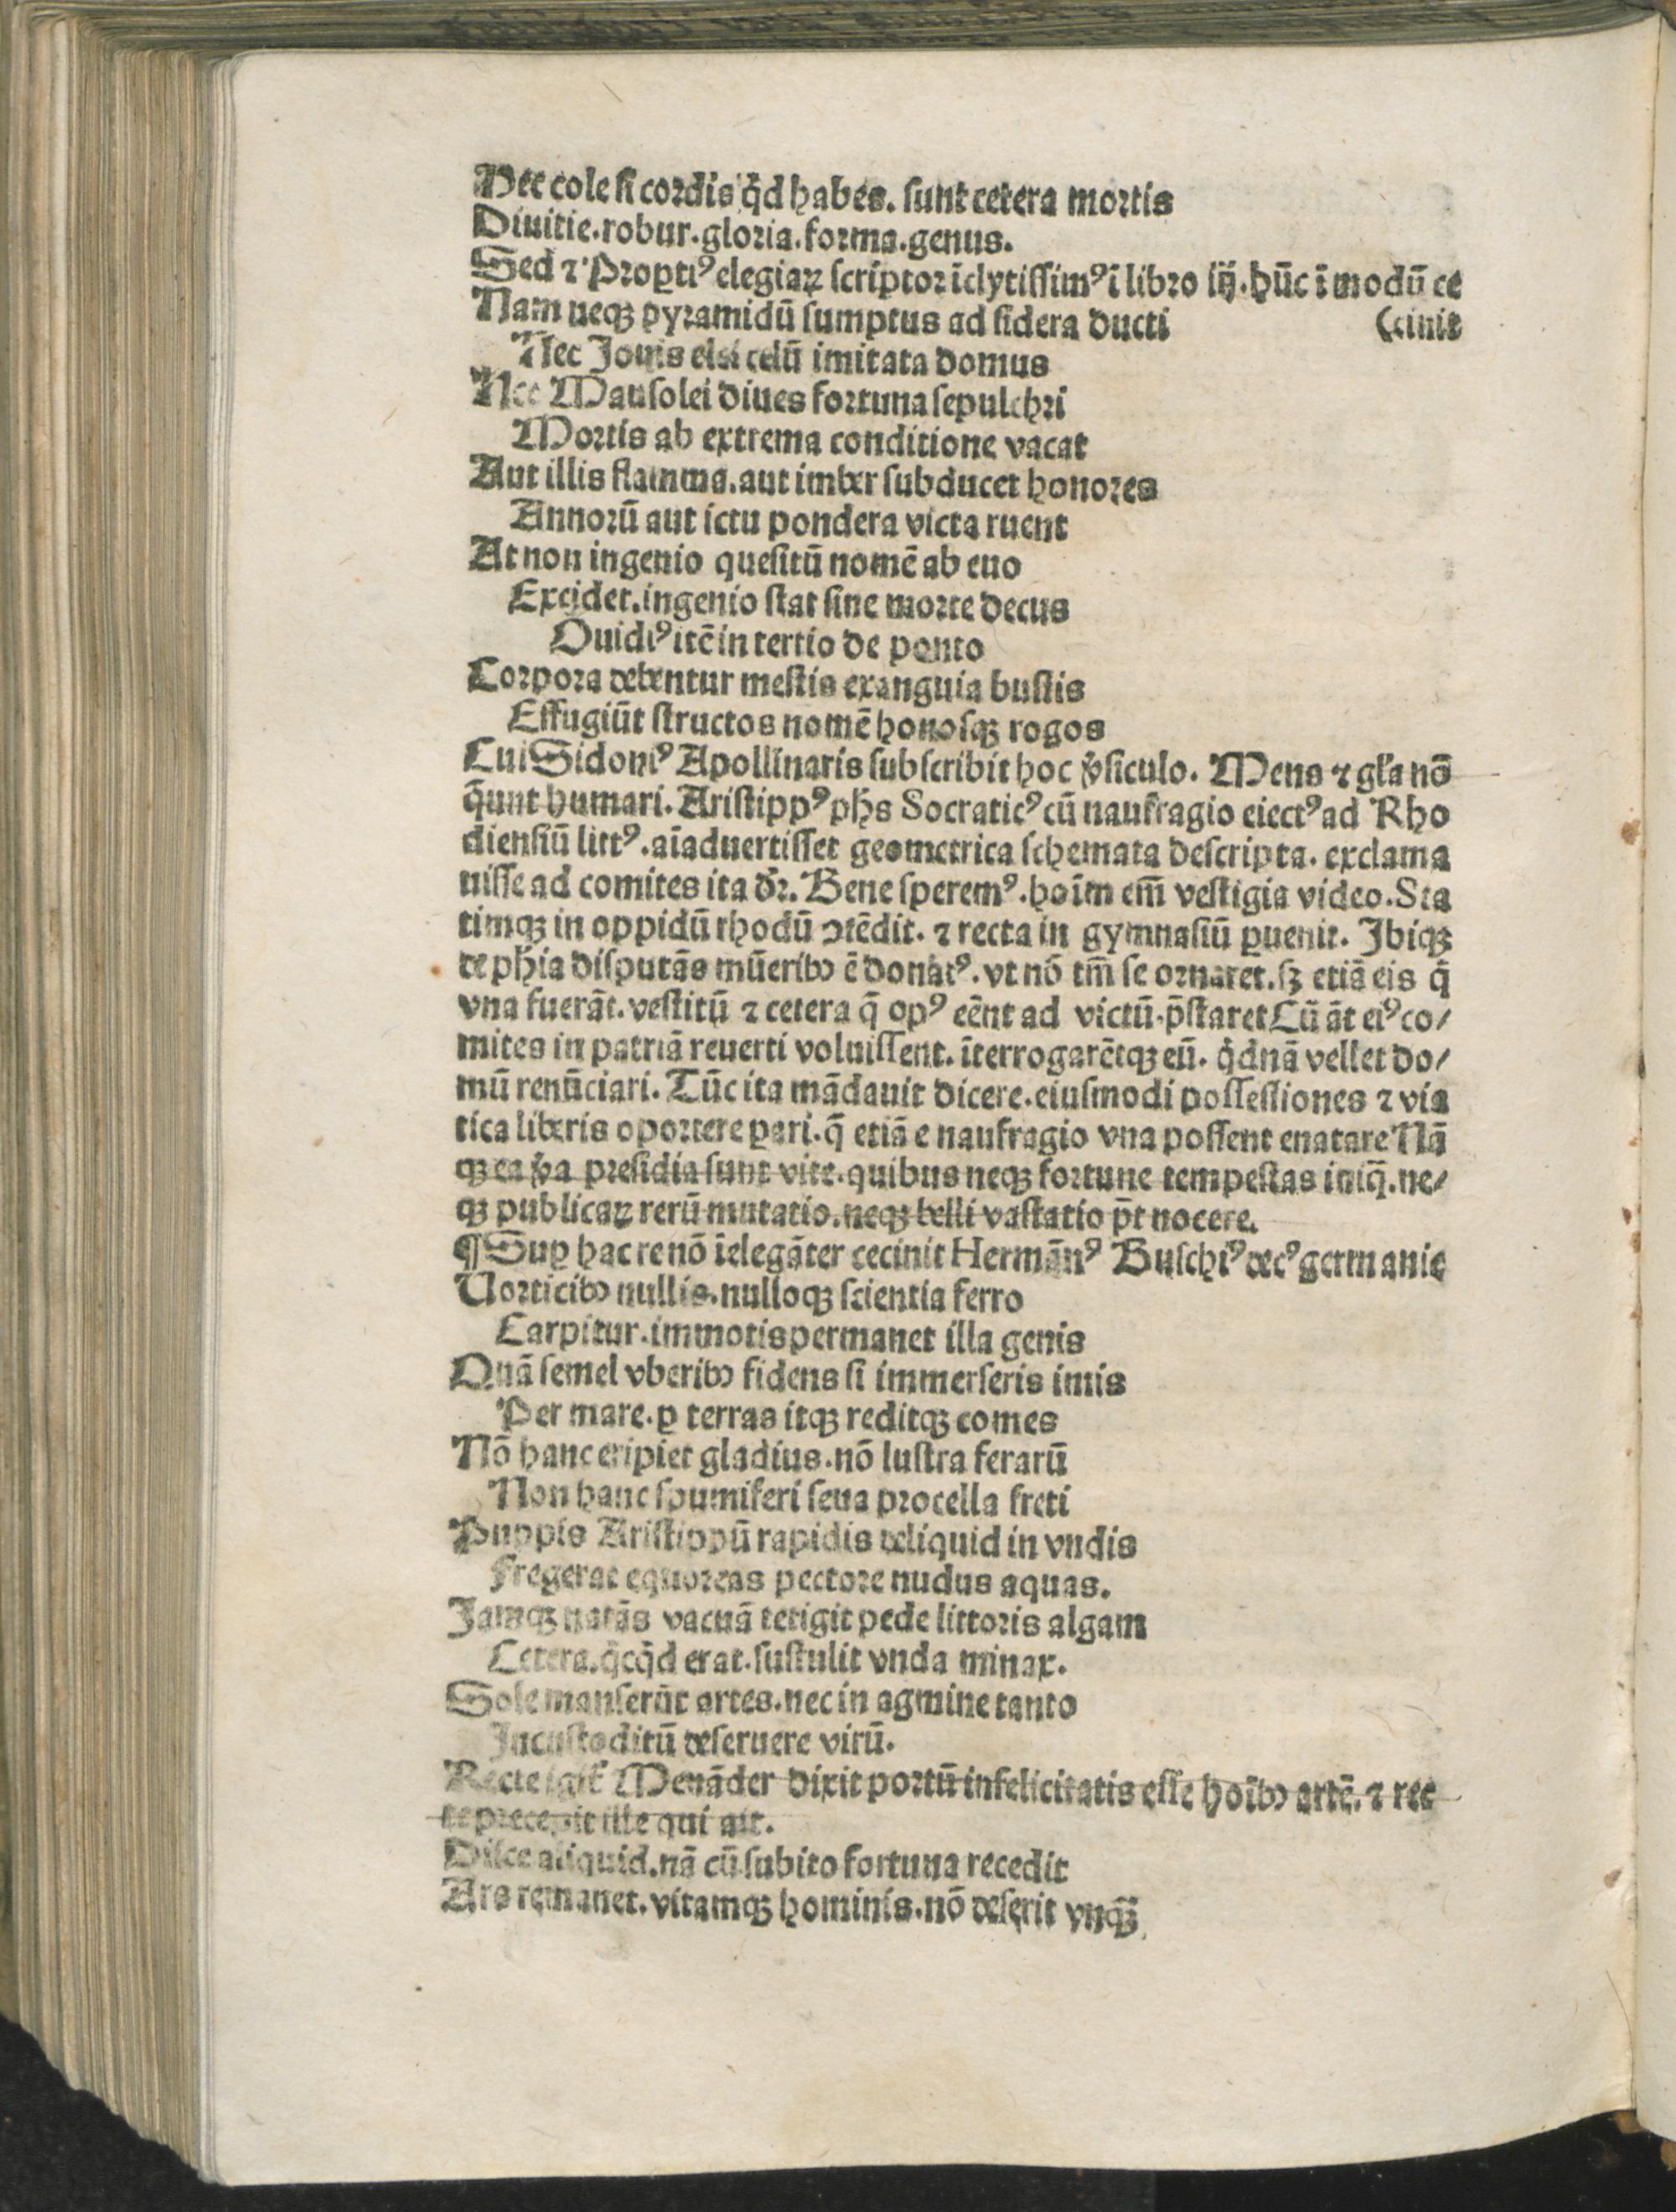 Hec cole si cordis qͥd habes. sunt cetera mortis
Diuitie.robur.gloria.forma.genus.
Sed ⁊ Proptiꝰ elegiaꝝ scriptor īclytissimꝰ ī libro iij.hūc ī modū ce
Nam neqꝫ pyramidū sumptus ad sidera ducti (cinit
Nec Jouis elsi celū imitata domus
Nec Mausolei diues fortuna sepulchri
Mortis ab extrema conditione vacat
Aut illis flamma.aut imber subducet honores
Annorū aut ictu pondera victa ruent
At non ingenio quesitū nomē ab euo
Excidet.ingenio stat sine morte decus
Ouidiꝰ itē in tertio de ponto
Corpora debentur mestis exanguia bustis
Effugiūt structos nomē honosqꝫ rogos
Cui Sidoniꝰ Apollinaris subscribit hoc ꝟsiculo. Mens ⁊ gl̄a nō
q̄unt humari. Aristippꝰ ph̄s Socraticꝰ cū naufragio eiectꝰ ad Rho
diensiū littꝰ.aīaduertisset geometrica schemata descripta. exclama
uisse ad comites ita dr̄. Bene speremꝰ.hoīm em̄ vestigia video.Sta
timqꝫ in oppidū rhodū ↄtēdit. ⁊ recta in gymnasiū ꝑuenit. Jbiqꝫ
de ph̄ia disputās mūeribꝰ ē donatꝰ.vt nō tm̄ se ornaret.sꝫ etiā eis q̄
vna fuerāt.vestitū ⁊ cetera q̄ opꝰ eēnt ad victū.p̄staret Cū āt eiꝰ co/
mites in patriā reuerti voluissent. īterrogarētqꝫ eū. qͥdnā vellet do/
mū renūciari. Tūc ita mādauit dicere.eiusmodi possessiones ⁊ via
tica liberis oportere pari.q̄ etiā e naufragio vna possent enatare Nā
qꝫ ea ꝟa presidia sunt vite.quibus neqꝫ fortune tempestas iniq̄.ne/
qꝫ publicaꝝ rerū mutatio.neqꝫ belli vastatio p̄t nocere.
¶ Suꝑ hac re nō īelegāter cecinit Hermānꝰ Buschiꝰ decꝰ germanie
Vorticibꝰ nullis.nulloqꝫ scientia ferro
Carpitur.immotis permanet illa genis
Quā semel vberibꝰ fidens si immerseris imis
Per mare.ꝑ terras itqꝫ reditqꝫ comes
Nō hanc eripiet gladius.nō lustra ferarū
Non hanc spumiferi seua procella freti
Puppis Aristippū rapidis deliquid in vndis
Fregerat equoreas pectore nudus aquas.
Jamqꝫ natās vacuā tetigit pede littoris algam
Cetera.qͥcqͥd erat.sustulit vnda minax.
Sole manserūt artes.nec in agmine tanto
Jncustoditū deseruere virū.
Recte igit᷑ Menāder dixit portū infelicitatis esse hoībꝰ artē. ⁊ rec
te precepit ille qui ait.
Disce aliquid.nā cū subito fortuna recedit
Ars remanet.vitamqꝫ hominis.nō deserit vnqꝫ̄